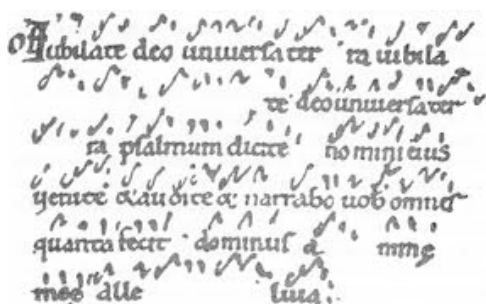 off Iubilate deo uniuersa ter ra iubila
te deo uniuersa ter
ra psalmum dicite nomini eius
uenite & audite & narrabo uob omnis
quanta fecit dominus a nimę
meę alle luia.